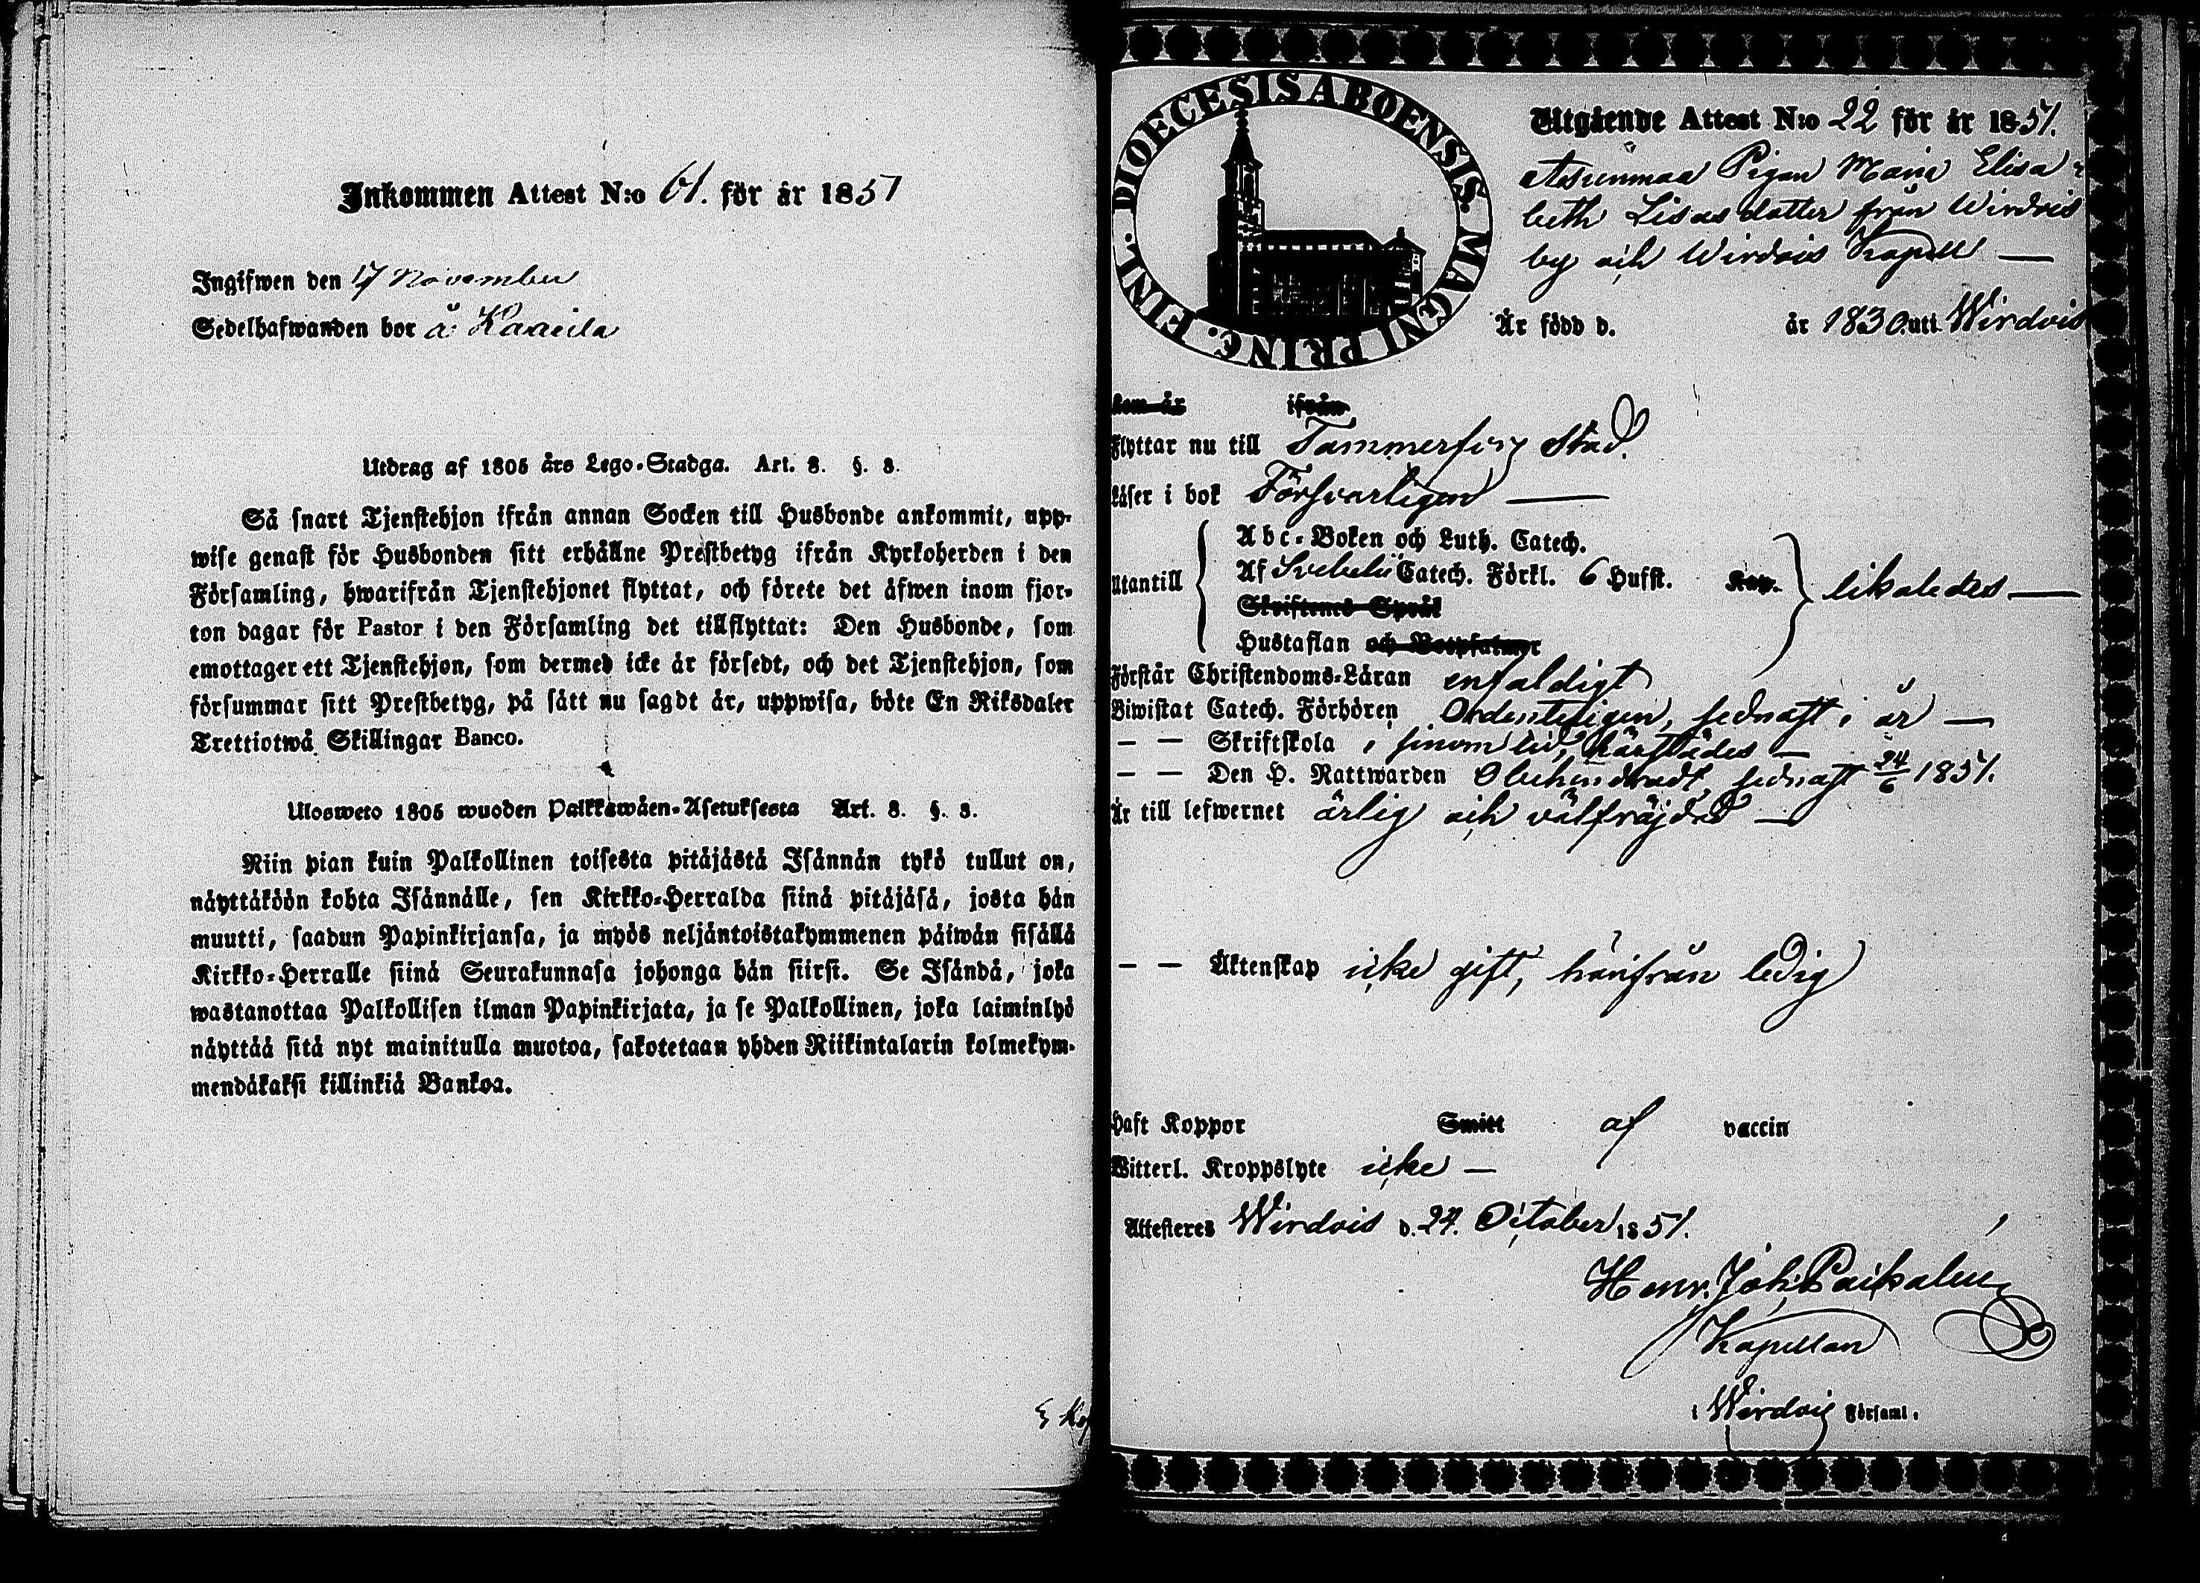 Inkommen Attest N:o 61. för år 1851
Ingifwen den 17 November
Sedelhafwanden bor å Kaacila
Utdrag af 1805 års Lego-Stadga. Art. 8. §. 8.
Så snart Tjenstehjon ifrån annan Socken till Husbonde ankommit, upp-
wise genast för Husbonden sitt erhållne Prestbetyg ifrån Kyrkoherden i den
Församling, hwarifrån Tjenstehjonet flyttat, och förete det äfwen inom fjor-
ton dagar för Pastor i den Församling det tillflyttat: Den Husbonde, som
emottager ett Tjenstehjon, som dermed icke är försedt, och det Tjenstehjon, som
försummar sitt Prestbetyg, på sätt nu sagdt är, uppwisa, böte En Riksdaler
Trettiotwå Skillingar Banco.
Ulosweto 1805 wuoden Palkkawäen-Asetuksesta Art. 8. §. 8.
Niin pian kuin Palkollinen toisesta pitäjästä Isännän tykö tullut on,
näyttäköön kohta Isännälle, sen Kirkko-Herralda siinä pitäjäsä, josta hän
muutti, saadun Papinkirjansa, ja myös neljäntoistakymmenen päiwän sisällä
Kirkko-Herralle siinä Seurakunnasa johonga hän siirsi. Se Isändä, joka
wastanottaa Palkollisen ilman Papinkirjata, ja se Palkollinen, joka laiminlyö
näyttää sitä nyt mainitulla muotoa, sakotetaan yhden Riikintalarin kolmekym-
mendäkaksi killinkiä Bankoa.
DIOECESIS ABOENSIS. MAGNI PRINC. FINL.
Utgående Attest N:o 22 för år 1851.
Pigan Maria Elisa-
beth Lisasdotter från Wirdois
by och Wirdois Kapell —
Är född d. år 1830 uti Wirdois
som är ifrån
Flyttar nu till Tammerfors Stad.
Läser i bok Försvarligen —
Utantill
Abc-Boken och Luth. Catech.
Af Svebelii Catech. Förkl. 6 Hufst. Kap.
Skriftenes Språk
Hustaflan och Botpsalmer
likaledes —
Förstår Christendoms-Läran enfaldigt
Biwistat Catech. Förhören Ordenteligen, sednast i år —
— — Skriftskola i sinom tid, härstädes —
— — Den H. Nattwarden Obehindradt, sednast 24/6 1851.
Är till lefwernet ärlig och välfräjdad —
— — Äktenskap icke gift, härifrån ledig
Haft Koppor Smitt af vaccin
Witterl. Kroppslyte icke —
Attesteres Wirdois d. 24. October 1851.
Henr. Joh.
Kapellan
i Wirdois Församl.